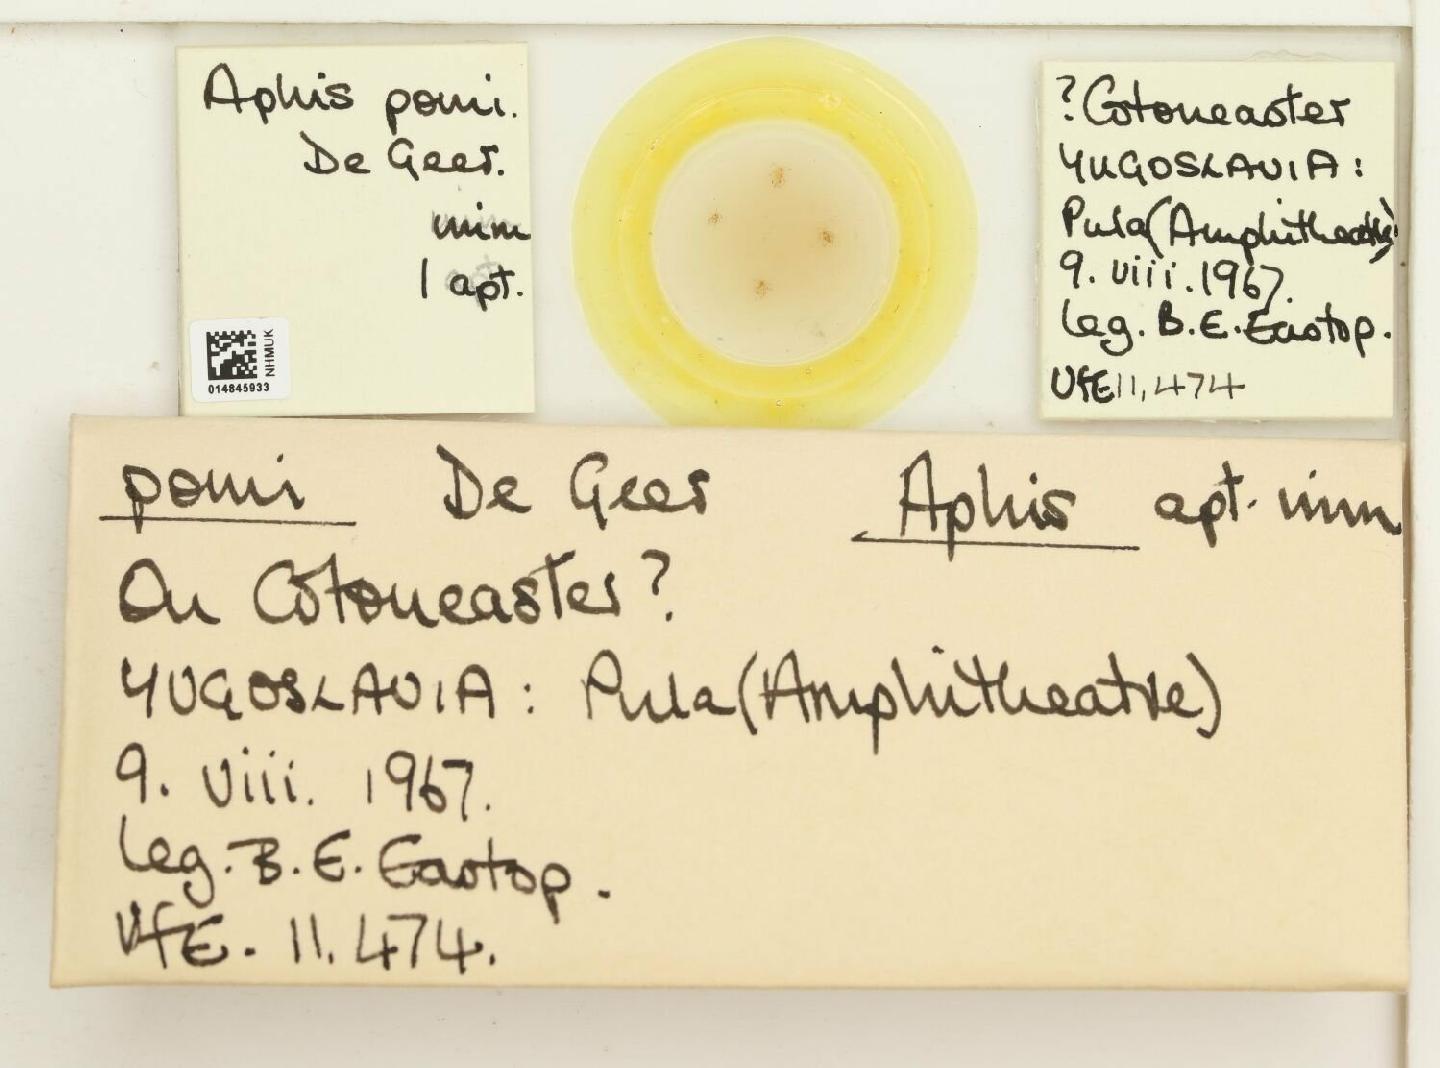 Aphis pomi.
De Geer.
mm
1 apt.
NHMUK
014845933
?Cotoneaster
YUGOSLAVIA:
Pula (Amphitheatre)
9. viii. 1967.
leg. B. E. Eastop.
VfE 11,474
pomi De Geer Aphis apt. mm
On Cotoneaster?
YUGOSLAVIA: Pula (Amphitheatre)
9. viii. 1967.
leg. B. E. Eastop.
VfE. 11.474.